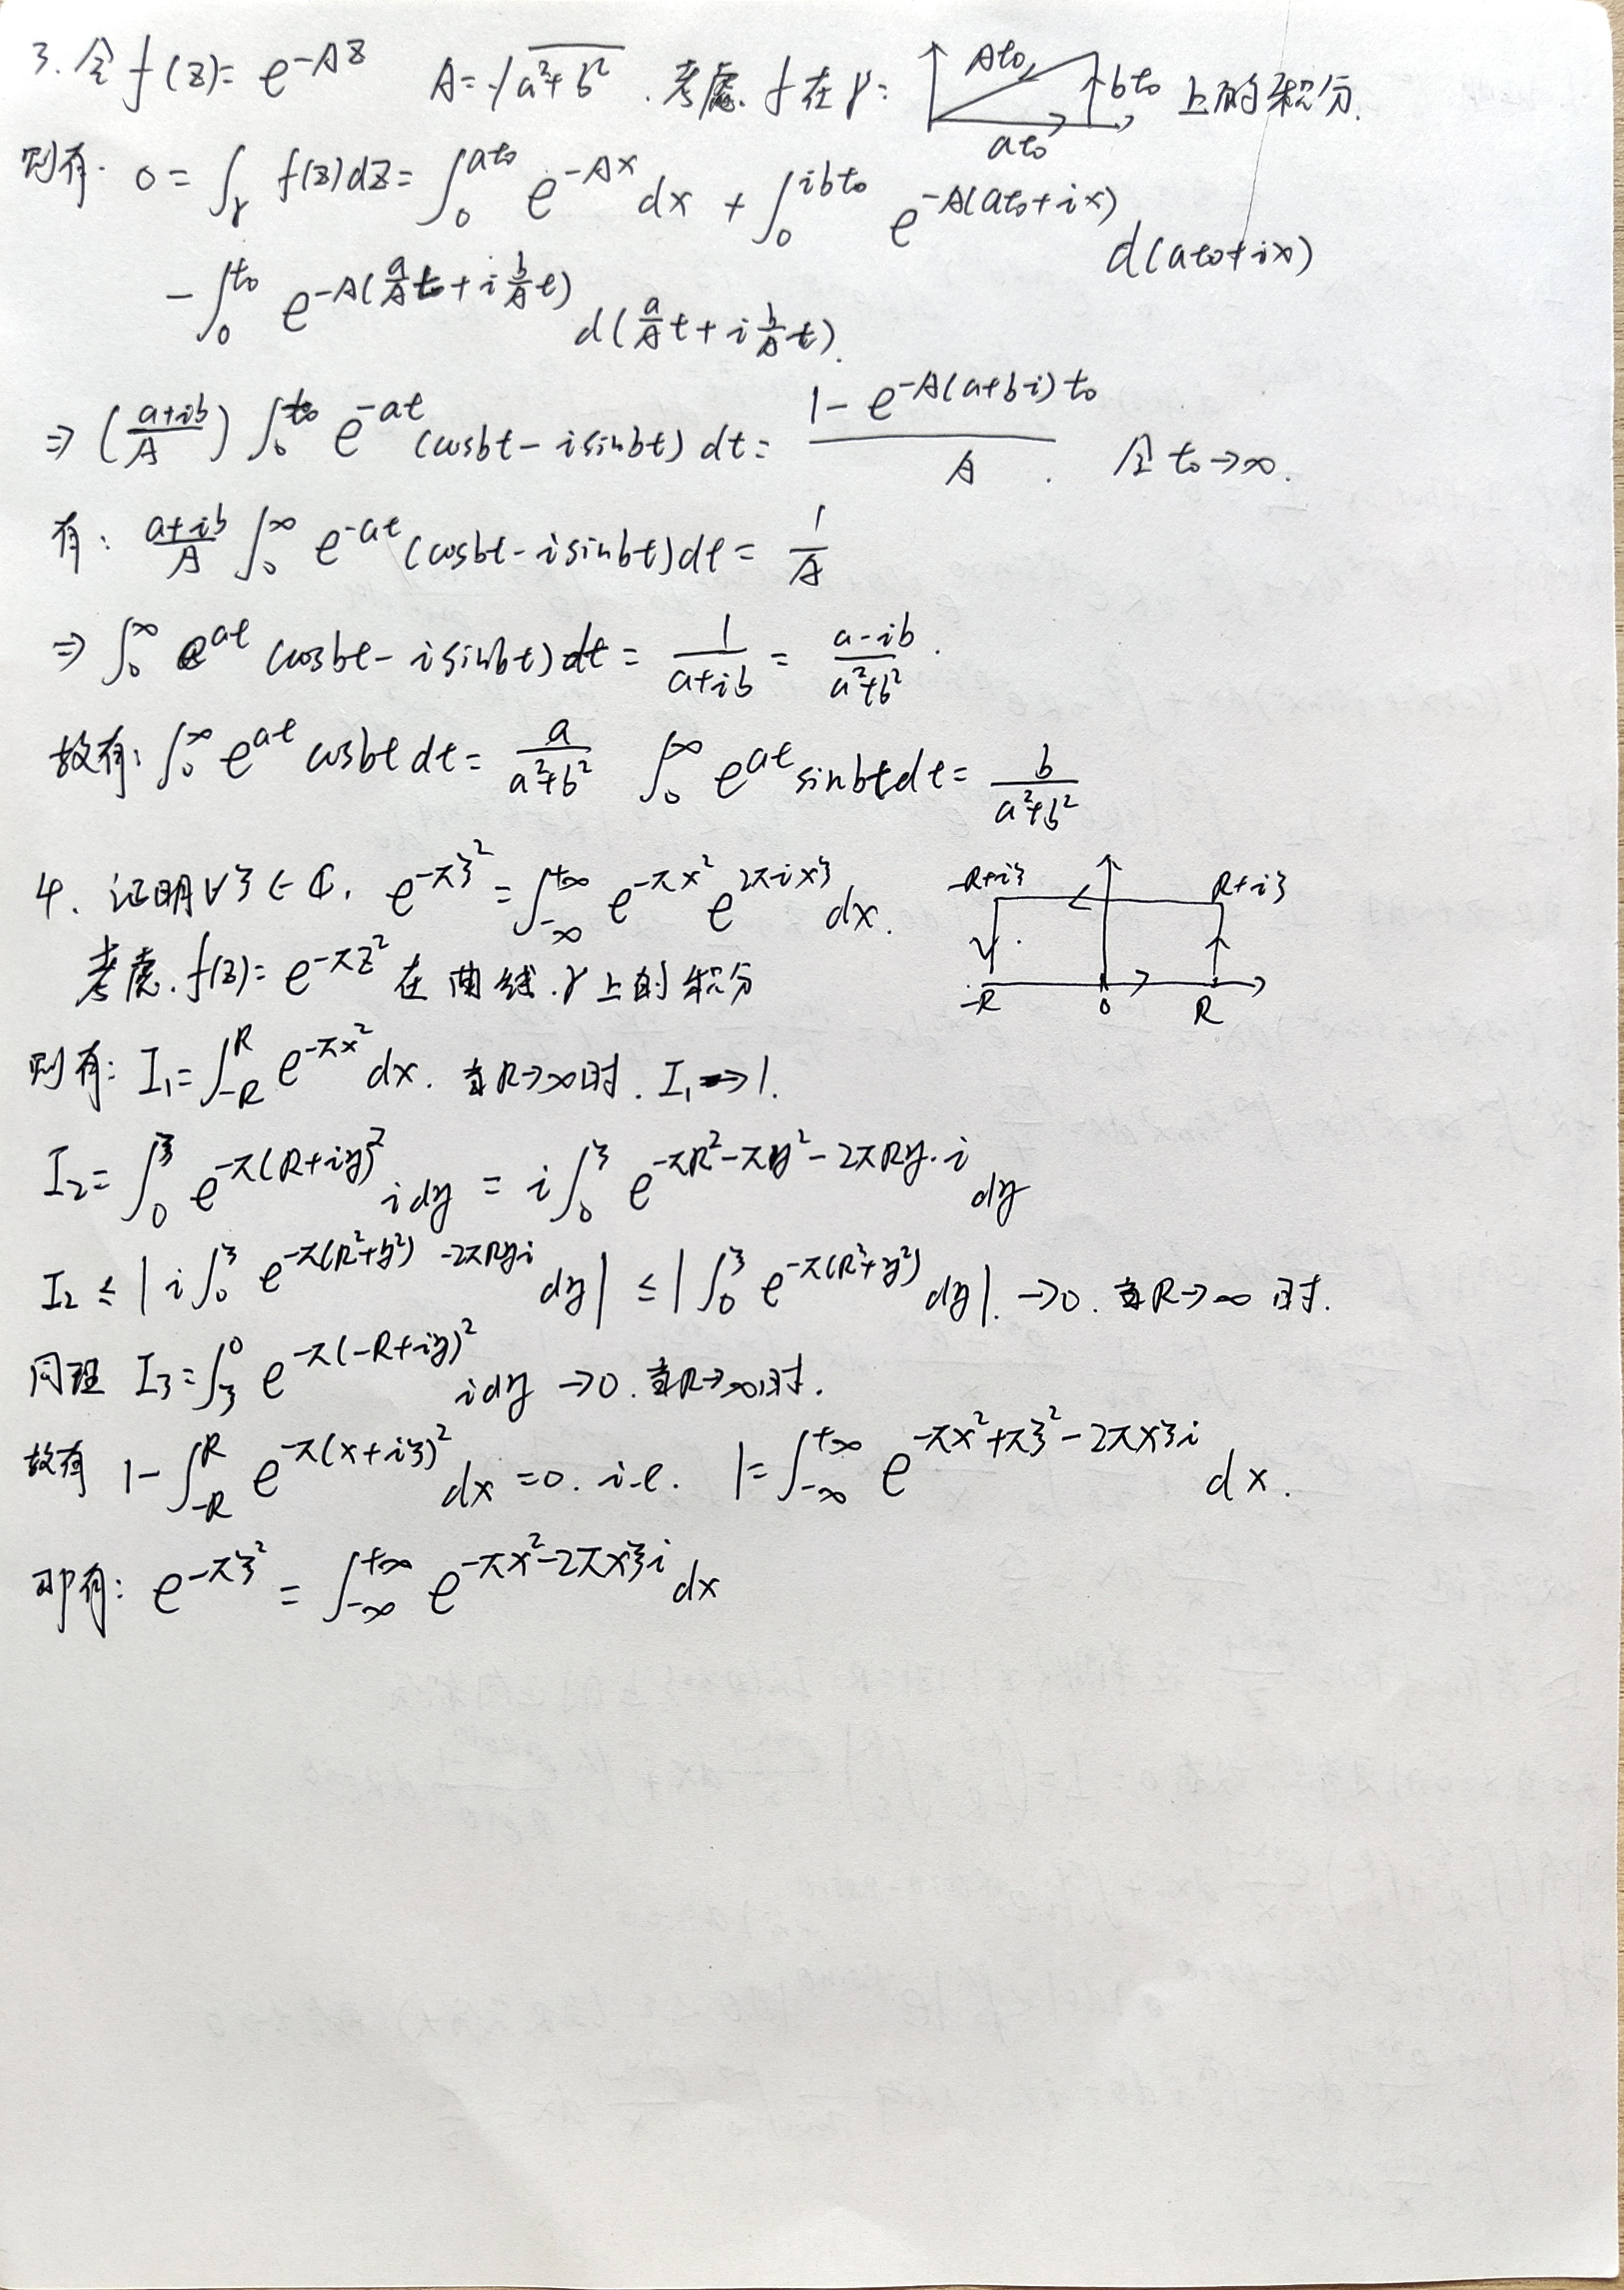 3. 令 f(z)= e^{-Az} A=√(a²+b²). 考虑. f 在 γ: At₀ bt₀ at₀ 上的积分.
则有. 0 = ∫_γ f(z)dz = ∫_0^{at₀} e^{-Ax} dx + ∫_0^{ibt₀} e^{-A(at₀+ix)} d(at₀+ix)
- ∫_0^{t₀} e^{-A(\frac{a}{A}t + i\frac{b}{A}t)} d(\frac{a}{A}t + i\frac{b}{A}t).
⇒ (\frac{a+ib}{A}) ∫_0^{t₀} e^{-at} (cosbt - isinbt) dt = \frac{1 - e^{-A(a+bi)t₀}}{A}. 令 t₀→∞.
有: \frac{a+ib}{A} ∫_0^∞ e^{-at} (cosbt - isinbt)dt = \frac{1}{A}
⇒ ∫_0^∞ e^{at} (cosbt - isinbt)dt = \frac{1}{a+ib} = \frac{a-ib}{a²+b²}.
故有: ∫_0^∞ e^{at} cosbt dt = \frac{a}{a²+b²} ∫_0^∞ e^{at} sinbt dt = \frac{b}{a²+b²}
4. 证明∀ξ∈ℂ, e^{-πξ²} = ∫_{-∞}^{+∞} e^{-πx²} e^{2πixξ} dx.
-R+iξ R+iξ
-R 0 R
考虑. f(z)= e^{-πz²} 在曲线.γ上的积分
则有: I₁ = ∫_{-R}^{R} e^{-πx²} dx. 当R→∞时. I₁→1.
I₂ = ∫_0^ξ e^{-π(R+iy)²} idy = i∫_0^ξ e^{-πR²-πy²-2πRy·i} dy
I₂ ≤ |i∫_0^ξ e^{-π(R²+y²) -2πRyi} dy| ≤ |∫_0^ξ e^{-π(R²+y²)} dy|. →0. 当R→∞时.
同理 I₃ = ∫_ξ^0 e^{-π(-R+iy)²} idy →0. 当R→∞时.
故有 1 - ∫_{-R}^{R} e^{-π(x+iξ)²} dx = 0. i.e. 1 = ∫_{-∞}^{+∞} e^{-πx²+πξ²-2πxξi} dx.
即有: e^{-πξ²} = ∫_{-∞}^{+∞} e^{-πx²-2πxξi} dx